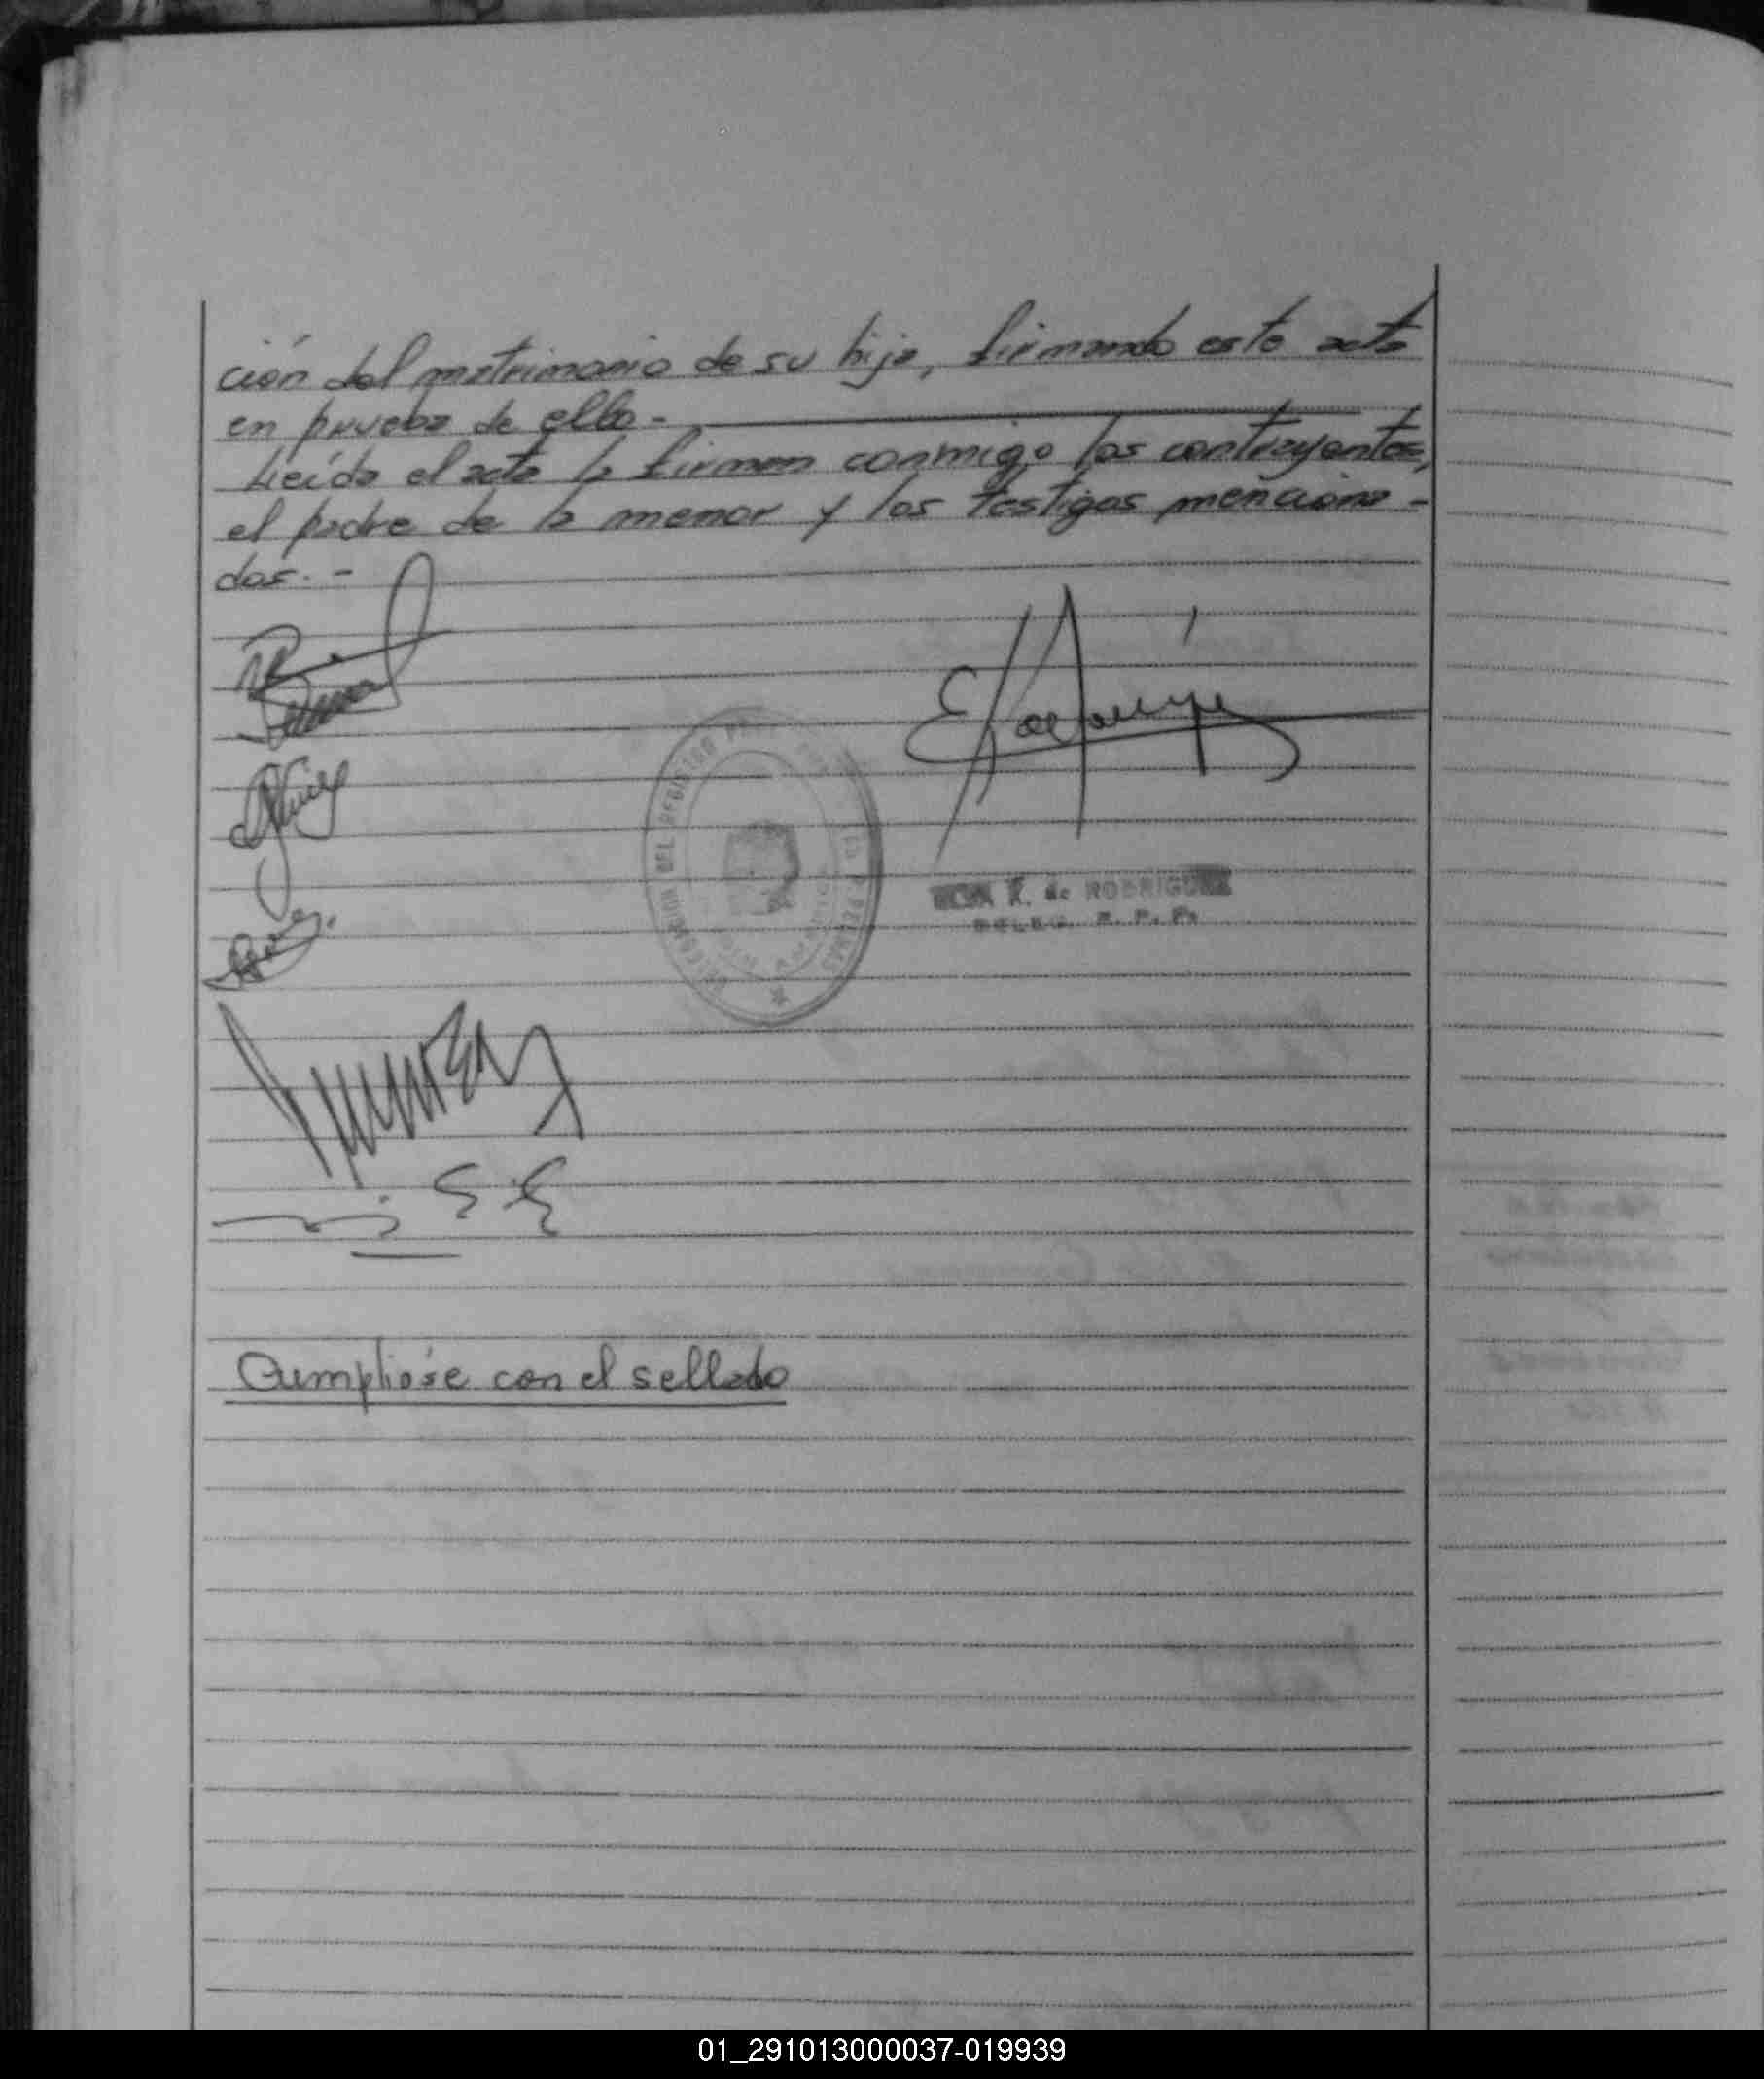 ción del matrimonio de su hija, firmando este acta
en prueba de ello.-
Leída el acta la firman conmigo los contrayentes,
el padre de la menor y los testigos menciona-
dos.-
DEL REGISTRO
de RODRIGUEZ
R. P. P.
Cumplióse con el sellado
01_291013000037-019939